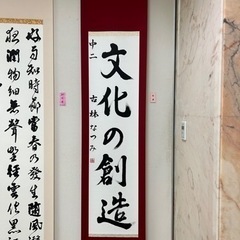 文化の創造
中二
古林なつみ
好雨知時節當春乃發生隨風潛
夜潤物細無聲野徑雲俱黑